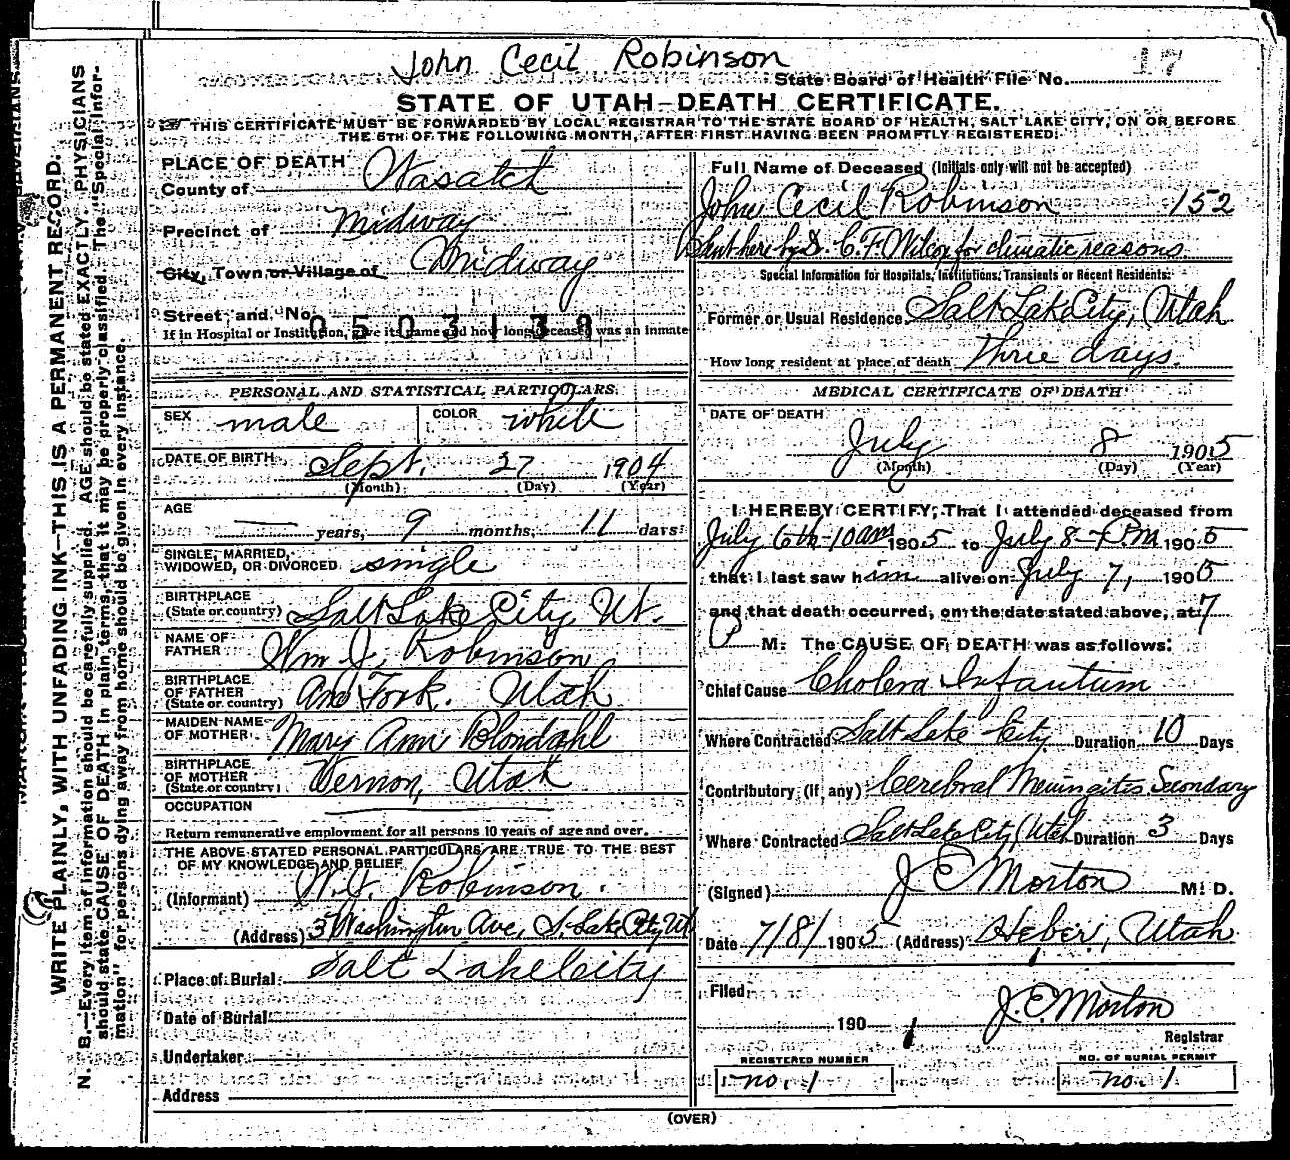 John Cecil Robinson
State Board of Health File No. 17
STATE OF UTAH—DEATH CERTIFICATE.
THIS CERTIFICATE MUST BE FORWARDED BY LOCAL REGISTRAR TO THE STATE BOARD OF HEALTH, SALT LAKE CITY, ON OR BEFORE
THE 5TH OF THE FOLLOWING MONTH, AFTER FIRST HAVING BEEN PROMPTLY REGISTERED.
PLACE OF DEATH
County of Wasatch
Precinct of Midway
City, Town or Village of Midway
Street and No.
0503138
If in Hospital or Institution, give its name and how long deceased was an inmate
PERSONAL AND STATISTICAL PARTICULARS.
SEX male COLOR white
DATE OF BIRTH Sept. 27 1904
(Month) (Day) (Year)
AGE
— years, 9 months, 11 days
SINGLE, MARRIED,
WIDOWED, OR DIVORCED single
BIRTHPLACE
(State or country) Salt Lake City Ut.
NAME OF
FATHER Wm J. Robinson
BIRTHPLACE
OF FATHER
(State or country) Am Fork. Utah
MAIDEN NAME
OF MOTHER Mary Ann Blondahl
BIRTHPLACE
OF MOTHER
(State or country) Vernon, Utah
OCCUPATION
Return remunerative employment for all persons 10 years of age and over.
THE ABOVE STATED PERSONAL PARTICULARS ARE TRUE TO THE BEST
OF MY KNOWLEDGE AND BELIEF
(Informant) W. J. Robinson.
(Address) 3 Washington Ave, S. Lake City Ut
Place of Burial Salt Lake City
Date of Burial
Undertaker
Address
Full Name of Deceased (Initials only will not be accepted)
John Cecil Robinson 152
Sent here by Dr. C. F. Wilcox for climatic reasons.
Special Information for Hospitals, Institutions, Transients or Recent Residents:
Former or Usual Residence Salt Lake City, Utah
How long resident at place of death Three days.
MEDICAL CERTIFICATE OF DEATH
DATE OF DEATH
July 8 1905
(Month) (Day) (Year)
I HEREBY CERTIFY, That I attended deceased from
July 6th 10 am 1905 to July 8 - P.M 1905
that I last saw him alive on July 7, 1905
and that death occurred, on the date stated above, at 7
P M. The CAUSE OF DEATH was as follows:
Chief Cause Cholera Infantum
Where Contracted Salt Lake City Duration 10 Days
Contributory (if any) Cerebral Meningites Secondary
Where Contracted Salt Lake City Utah Duration 3 Days
(Signed) J E Morton M. D.
Date 7/8/ 1905 (Address) Heber, Utah
Filed
190 J. E. Morton
Registrar
REGISTERED NUMBER NO. OF BURIAL PERMIT
no. 1 no. 1
(OVER)
WRITE PLAINLY, WITH UNFADING INK—THIS IS A PERMANENT RECORD.
N. B.—Every item of information should be carefully supplied. AGE should be stated EXACTLY. PHYSICIANS
should state CAUSE OF DEATH in plain terms, that it may be properly classified. The "Special Infor-
mation" for persons dying away from home should be given in every instance.